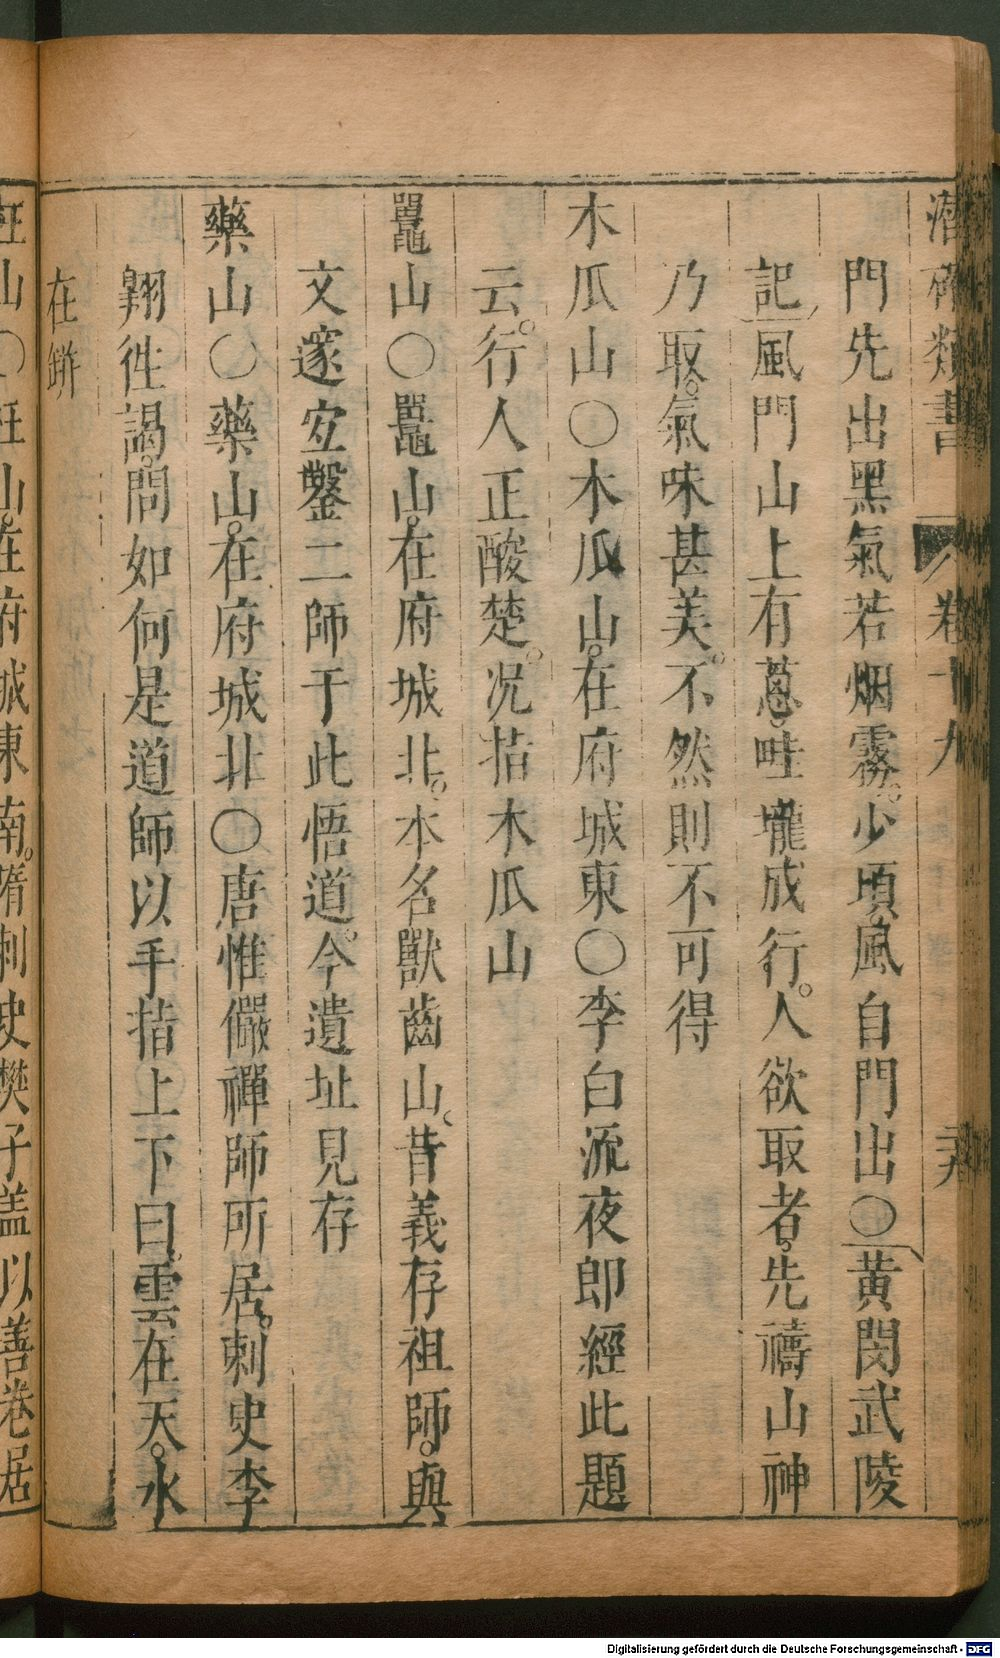 潛確類書 卷十九
門先出黑氣若烟霧。少頃風自門出○黃閔武陵
記風門山上有蔥。畦壠成行。人欲取者。先禱山神
乃取。氣味甚美。不然則不可得
木瓜山○木瓜山。在府城東○李白流夜郎經此題
云。行人正酸楚。况指木瓜山
鼉山○鼉山。在府城北。本名獸齒山。昔義存祖師。與
文邃宐鑿二師于此悟道。今遺址見存
藥山○藥山。在府城北○唐惟儼禪師所居。刺史李
翱徃謁。問如何是道師以手指上下曰。雲在天。水
在缾
枉山○枉山。在府城東南。隋刺史樊子盖以善卷居
Digitalisierung gefördert durch die Deutsche Forschungsgemeinschaft - DFG